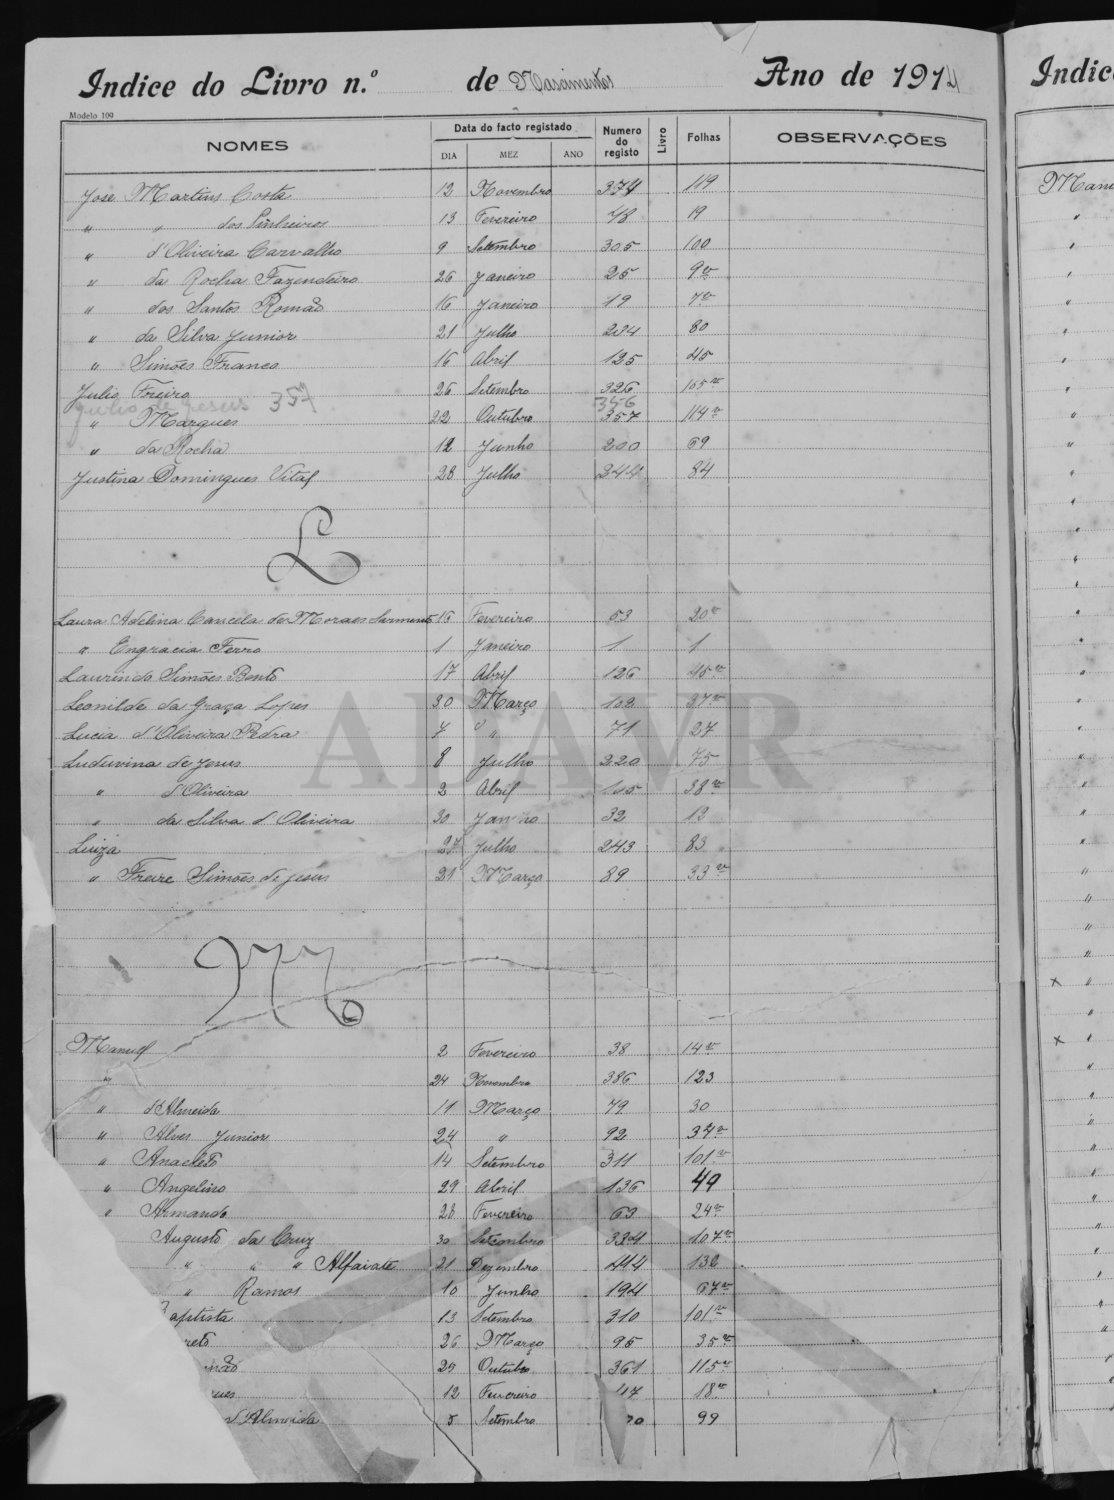 Indice do Livro n.º de Nascimentos Ano de 1914
Modelo 109
NOMES Data do facto registado Numero do registo Livro Folhas OBSERVAÇÕES
DIA MEZ ANO
José Martins Costa 12 Novembro 374 119
" " dos Pinheiros 13 Fevereiro 48 19
" d'Oliveira Carvalho 9 Setembro 305 100
" da Rocha Fazendeiro 26 Janeiro 25 9v
" dos Santos Romão 16 Janeiro 19 7v
" da Silva Junior 21 Julho 234 80
" Simões Franco 16 Abril 125 45
Julio Freiro 26 Setembro 326 105v
Julio de Jesus 357 356
" Marques 22 Outubro 357 114v
" da Rocha 12 Junho 200 69
Justina Domingues Vital 28 Julho 244 84
L
Laura Adelina Cancela de Moraes Sarmento 16 Fevereiro 53 20v
" Engracia Ferro 1 Janeiro 1 1
Laurindo Simões Bento 17 Abril 126 45v
Leonilde da Graça Lopes 30 Março 102 37v
Lucia d'Oliveira Pedra 7 " " 71 27
Ludovina de Jesus 8 Julho 220 75
" d'Oliveira 2 Abril 105 38v
" da Silva d'Oliveira 30 Janeiro 32 12
Luiza 27 Julho 243 83
" Freire Simões de Jesus 21 Março 89 33v
ADAVR
M
Manuel 2 Fevereiro 38 14v
" 24 Novembro 386 123
" d'Almeida 11 Março 79 30
" Alves Junior 24 " 92 34v
" Anacleto 14 Setembro 311 101v
" Angelino 29 Abril 136 49
" Armando 28 Fevereiro 63 24v
Augusto da Cruz 30 Setembro 334 107v
" " " Alfaiate 21 Dezembro 414 130
" Ramos 10 Junho 194 67v
Baptista 13 Setembro 310 101v
reto 26 Março 95 35v
mão 25 Outubro 361 115v
ques 12 Fevereiro 47 18v
d'Almeida 5 Setembro 99
Indic
Manu